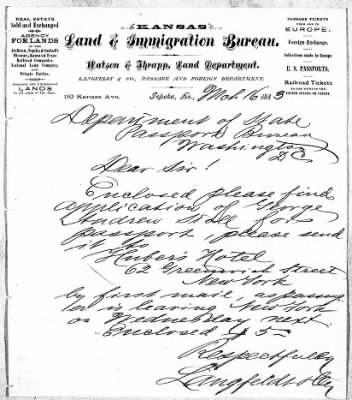 REAL ESTATE
Sold and Exchanged
AGENCY
FOR LANDS
OF THE
Atchison, Topeka & Santa Fe
Missouri, Kansas & Texas
Railroad Companies.
National Land Company,
and
Private Parties.
LANDS
KANSAS
Land & Immigration Bureau.
Watson & Thrapp, Land Department.
LANGFELDT & CO., PASSAGE AND FOREIGN DEPARTMENT.
PASSAGE TICKETS
FROM AND TO
EUROPE.
Foreign Exchange.
Collections made in Europe
U. S. PASSPORTS.
Railroad Tickets
TO ALL PARTS OF THE
UNITED STATES OR CANADA.
110 Kansas Ave. Topeka, Ks., Mch 16 1883
Department of State
Passport Bureau
Washington
D.C.
Dear Sir!
Enclosed please find
application of George
Andrew Stoll for
passport please send
it to
Huber's Hotel
62 Greenwich Street
New York
by first mail, as passen
ger is leaving New York
on Wednesday next.
Enclosed $ 5 -
Respectfully
Langfeldt & Co